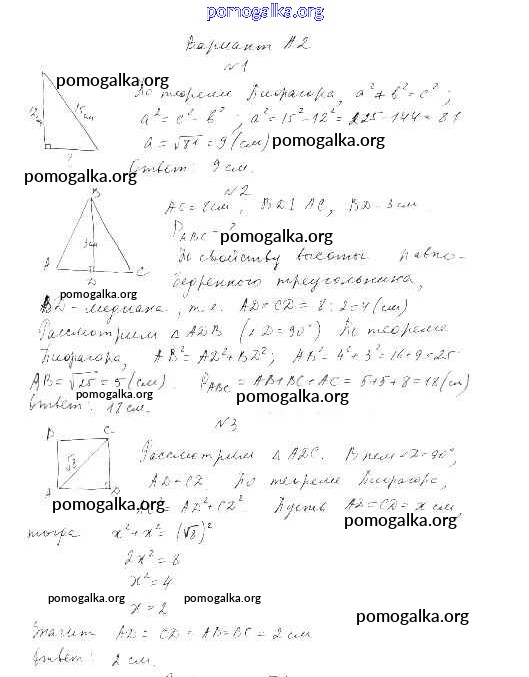 pomogalka.org
Вариант А2
№1
pomogalka.org
12см 15см ?
По теореме Пифагора, a² + b² = c² ;
a² = c² - b² ; a² = 15² - 12² = 225 - 144 = 81
a = √81 = 9 (см) pomogalka.org
pomogalka.org Ответ: 9 см.
№2
B A D C 3см
AC = 8 см, BD⊥AC, BD - 3 см.
P ABC - ? pomogalka.org
По свойству высоты равно-
бедренного треугольника,
pomogalka.org
BD - медиана, т.е. AD = CD = 8 : 2 = 4 (см)
Рассмотрим △ADB (∠D = 90°) По теореме
Пифагора, AB² = AD² + BD² ; AB² = 4² + 3² = 16 + 9 = 25
AB = √25 = 5 (см). P ABC = AB + BC + AC = 5 + 5 + 8 = 18 (см)
pomogalka.org pomogalka.org
Ответ: 18 см.
№3
B C √8 A D
Рассмотрим △ADC. В нем ∠D = 90°,
AD = CD По теореме Пифагора,
pomogalka.org AC² = AD² + CD². Пусть AD = CD = x см,
pomogalka.org
тогда x² + x² = (√8)²
2x² = 8
x² = 4
pomogalka.org pomogalka.org
x = 2
pomogalka.org
Значит AD = CD = AB = BC = 2 см
Ответ: 2 см.